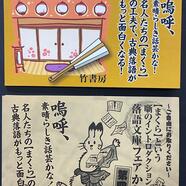 嗚呼、
素晴らしき話芸かな!
名人たちの【まくら】
の工夫で、古典落語が
もっと面白くなる!
竹書房
～ご自由にお取りください～
噺のイントロダクション
【まくら】という
落語文庫フェア
嗚呼、
素晴らしき話芸かな!
名人たちの【まくら】の
古典落語がもっと面白